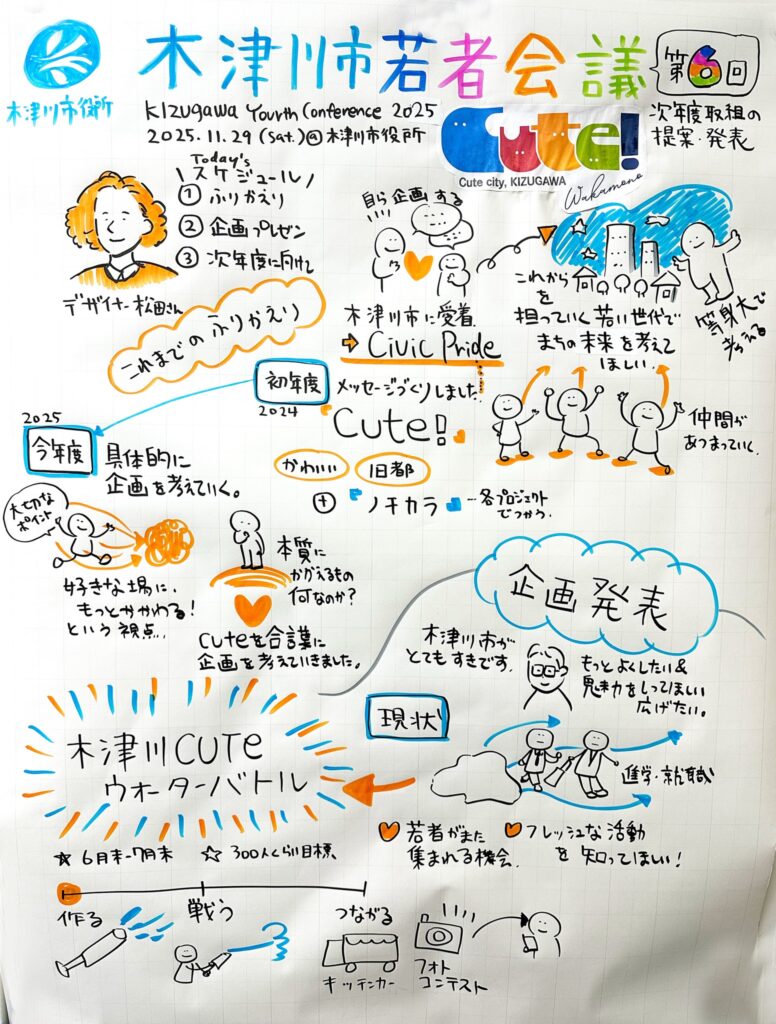 木津川市役所
木津川市若者会議
第6回
KIZUGAWA Yourth Conference 2025
2025.11.29 (Sat.) @ 木津川市役所
Cute!
Cute city, KIZUGAWA
Wakamono
次年度取組の
提案・発表
Today's
スケジュール
① ふりかえり
② 企画プレゼン
③ 次年度に向けて
デザイナー 松田さん
自ら企画する
木津川市に愛着
Civic Pride
これから
を
担っていく若い世代で
まちの未来を考えて
ほしい
等身大で
考える
これまでのふりかえり
初年度
2024
メッセージづくりしました
Cute!
かわいい
旧都
+ 「ノチカラ」
…各プロジェクト
でつかう.
仲間が
あつまっていく
2025
今年度
具体的に
企画を考えていく。
大切な
ポイント
好きな場に、
もっとかかわる!
という視点…
本質に
かかえるもの
何なのか?
cuteを合議に
企画を考えていきました。
企画発表
木津川市が
とてもすきです.
もっとよくしたい&
魅力をしってほしい
広げたい。
現状
進学・就職
若者がまた
集まれる機会.
フレッシュな活動
を 知ってほしい!
木津川CUTE
ウォーターバトル
★ 6月末-7月末
☆ 300人くらい目標.
作る
戦う
つながる
キッチンカー
フォト
コンテスト